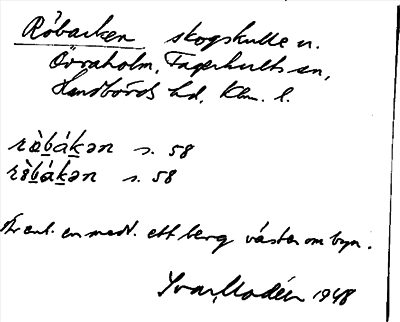 Råbacken skogskulle n.
Övraholm, Fagerhults sn,
Handbörds hd, Klm. l.
ràbákən s. 58
rèbákən s. 58
enl. en medd. ett berg väster om byn.
Ivar Modéer 1948